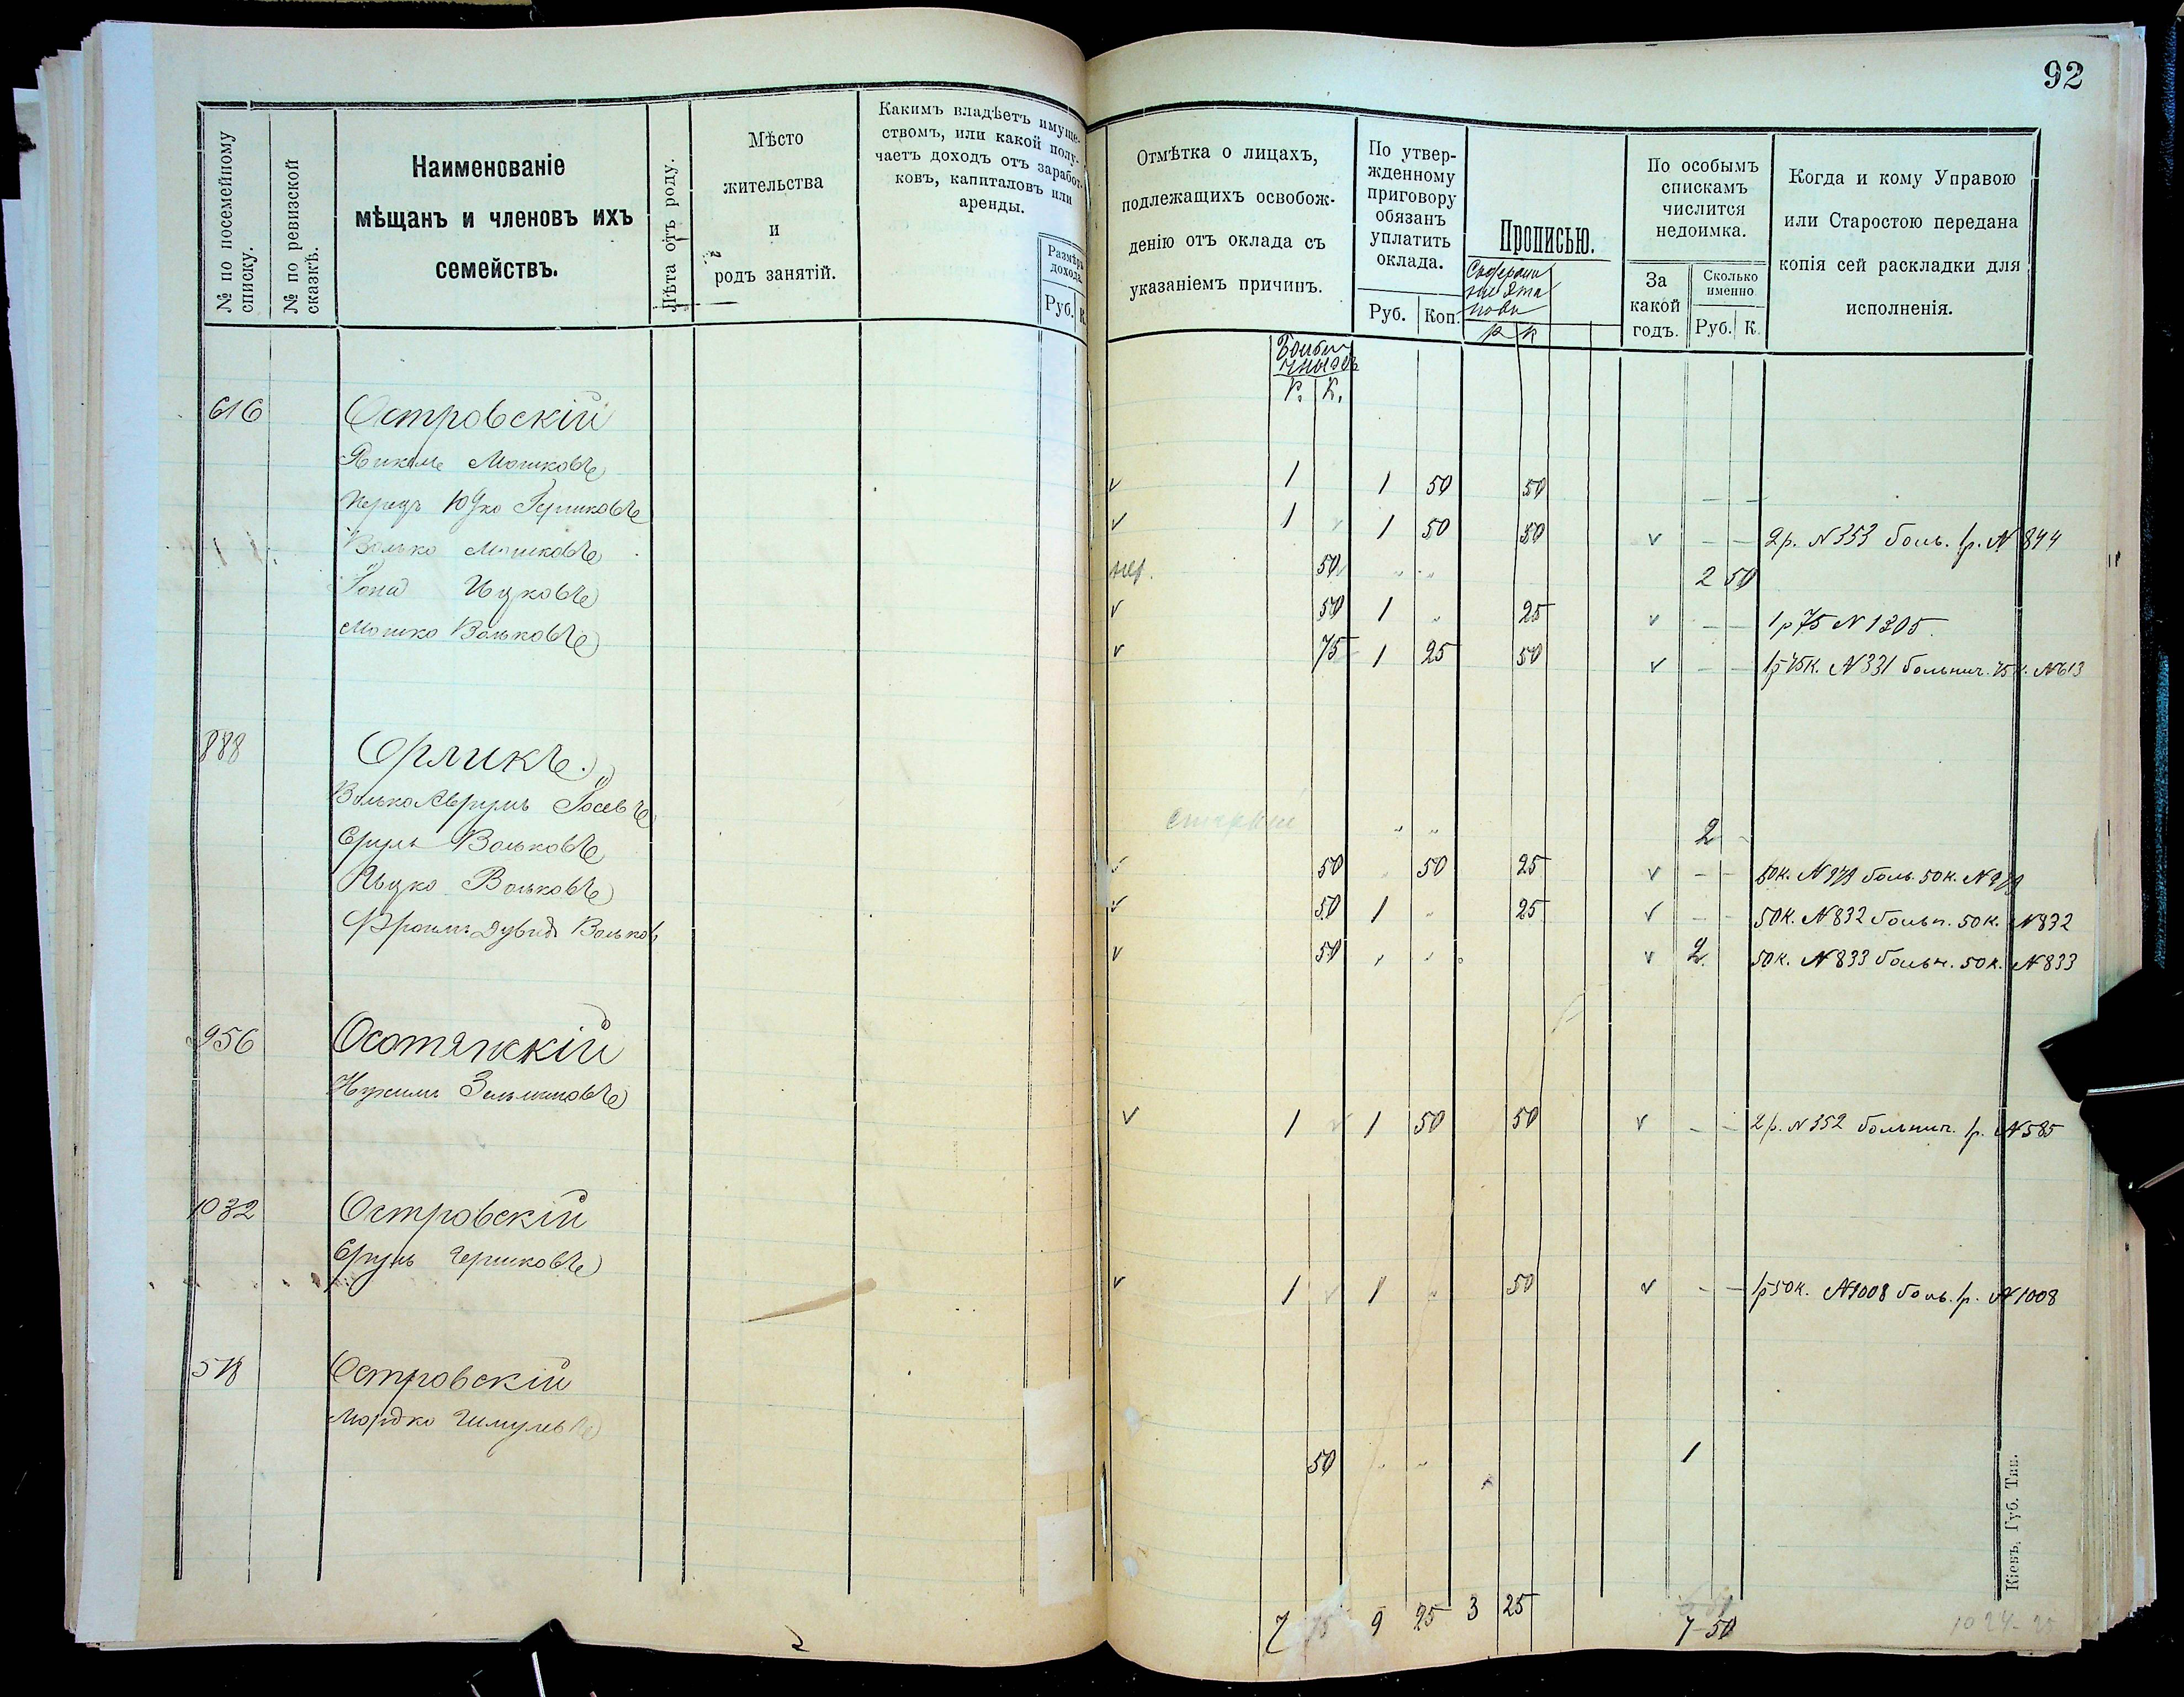 92
№ по посемейному списку.
№ по ревизской сказкѣ.
Наименованіе
мѣщанъ и членовъ ихъ
семействъ.
Лѣта отъ роду.
Мѣсто
жительства
и
родъ занятій.
Какимъ владѣетъ имуще-
ствомъ, или какой полу-
чаетъ доходъ отъ заработ-
ковъ, капиталовъ или
аренды.
Размѣръ
дохода.
Руб. К.
Отмѣтка о лицахъ,
подлежащихъ освобож-
денію отъ оклада съ
указаніемъ причинъ.
По утвер-
жденному
приговору
обязанъ
уплатить
оклада.
Руб. Коп.
Прописью.
р к
По особымъ
спискамъ
числится
недоимка.
За
какой
годъ.
Сколько
именно
Руб. К.
Когда и кому Управою
или Старостою передана
копія сей раскладки для
исполненія.
Р. К.
616 Островскій
Мошковъ 1 1 50 50
Перецъ Юдко Гершковъ 1 1 50 50 2р. N 353 боль. 1р. N 844
Волько Мошковъ 50 2 50
Іона Ицковъ 50 1 25 1р 75 N 1305
Мошко Вольковъ 75 1 25 50 1р 75к. N 331 больнич. 75к. N 613
888 Орликъ.
Волько Аврумъ Іосевъ старый 2
Сруль Вольковъ 50 50 25 50к. N 979 боль. 50к. N 979
Ицко Вольковъ 50 1 25 50к. N 832 больн. 50к. N 832
Фроимъ Дувидъ Вольковъ 50 2 50к. N 833 больн. 50к. N 833
956 Осотянскій
Нухимъ Зельмановъ 1 1 50 50 2р. N 352 больнич. 1р. N 585
1032 Островскій
Сруль Гершковъ 1 1 50 1р 50к. N 1008 боль. 1р. N 1008
518 Островскій
Мордко Шмулевъ 50 1
7 75 9 25 3 25 7-50
1024-25
Кіевъ, Губ. Тип.